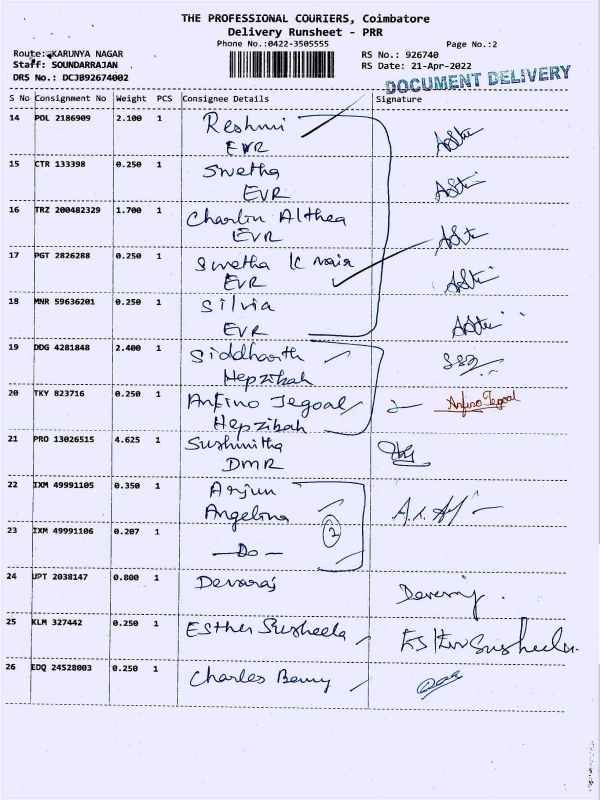 THE PROFESSIONAL COURIERS, Coimbatore
Delivery Runsheet - PRR
Phone No.:0422-3505555
Page No.:2
Route: KARUNYA NAGAR
RS No.: 926740
Staff: SOUNDARRAJAN
RS Date: 21-Apr-2022
DRS No.: DCJB92674002
DOCUMENT DELIVERY
S No Consignment No Weight PCS Consignee Details Signature
14 POL 2186909 2.100 1 Reshmi
EVR
15 CTR 133398 0.250 1 Swetha
EVR
16 TRZ 200482329 1.700 1 Charlin Althea
EVR
17 PGT 2826288 0.250 1 Swetha K Nair
EVR
18 MNR 59636201 0.250 1 Silvia
EVR
19 DDG 4281848 2.400 1 Siddharth
Hepzibah
20 TKY 823716 0.250 1 Anfino Jegoal Anfino Jegoal
Hepzibah
21 PRO 13026515 4.625 1 Sushmitha
DMR
22 IXM 49991105 0.350 1 Arjun
Angelina
2
23 IXM 49991106 0.207 1 - Do -
24 UPT 2038147 0.800 1 Devaraj Devaraj
25 KLM 327442 0.250 1 Esther Susheela Esther Susheela
26 EDQ 24528003 0.250 1 Charles Benny